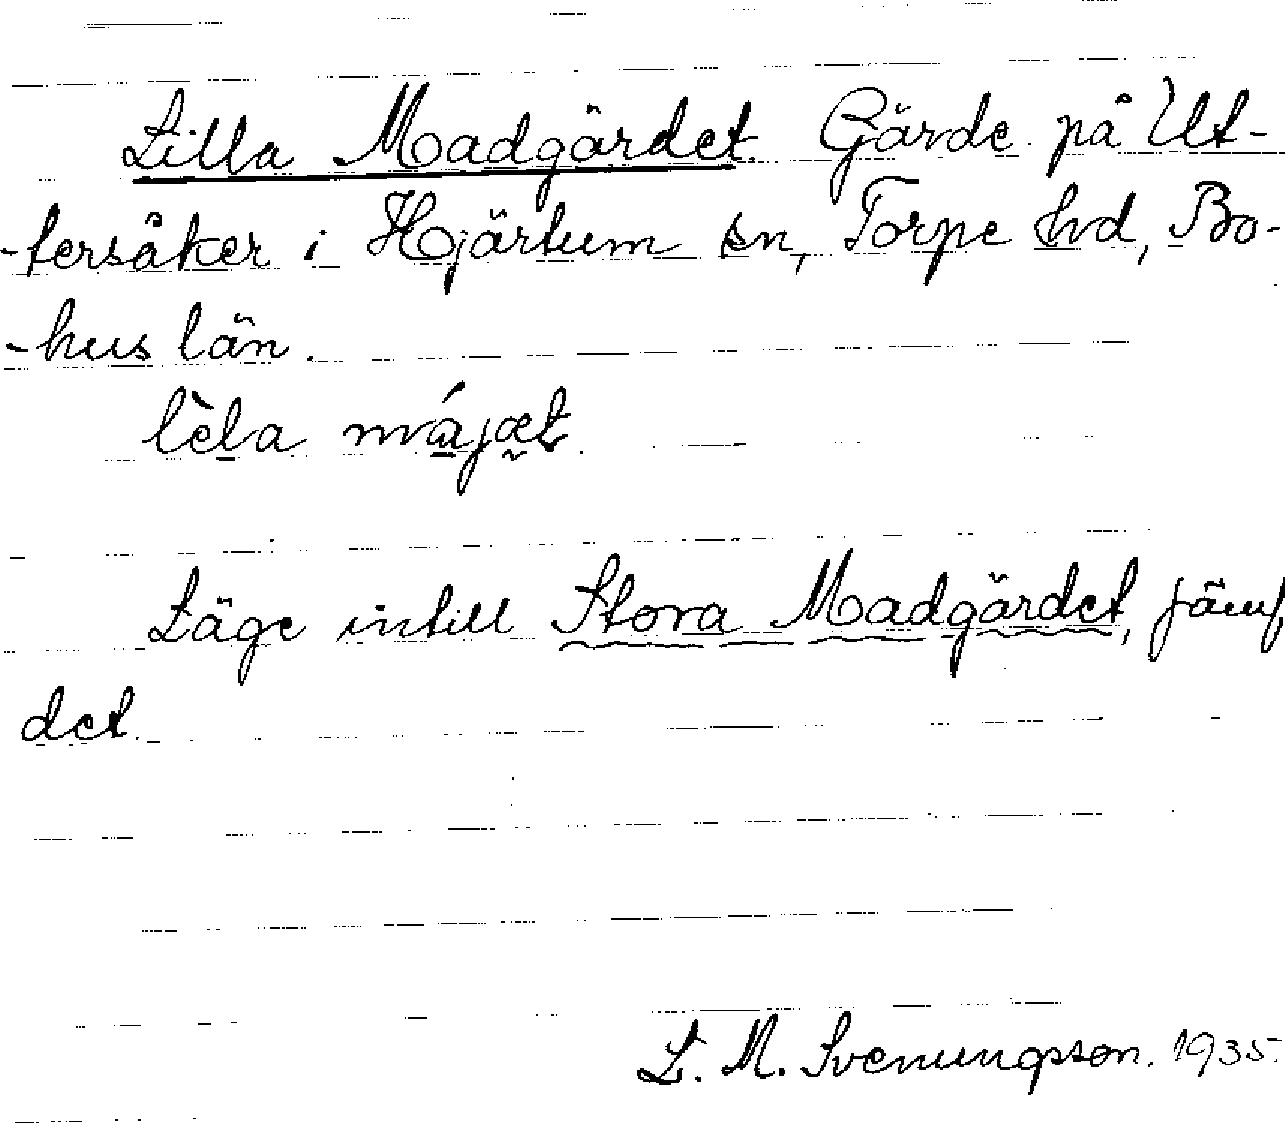 Lilla Madgärdet. Gärde på Ut-
-tersåker i Hjärtum sn, Torpe hd, Bo-
-hus län.
lèla májæt.
Läge intill Stora Madgärdet, jämf
det.
L. M. Svenungsson. 1935.